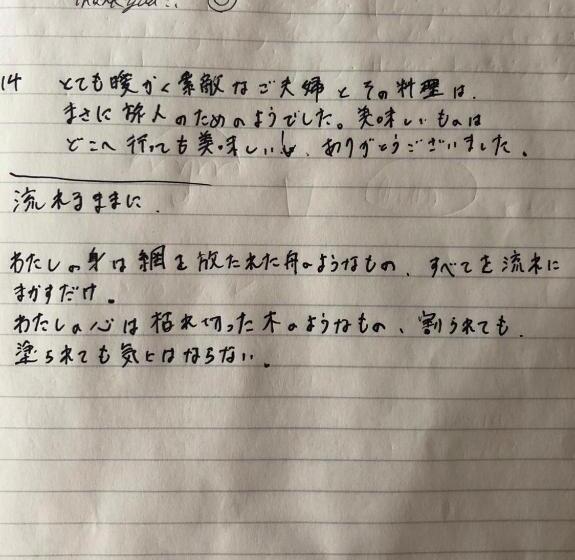 thank you!!
14 とても暖かく素敵なご夫婦とその料理は、
まさに旅人のためのようでした。美味しいものは
どこへ行っても美味しい!、ありがとうございました。
流れるままに、
わたしの身は網を放たれた舟のようなもの、すべてを流れに
まかすだけ。
わたしの心は枯れ切った木のようなもの、割られても、
塗られても気にはならない。